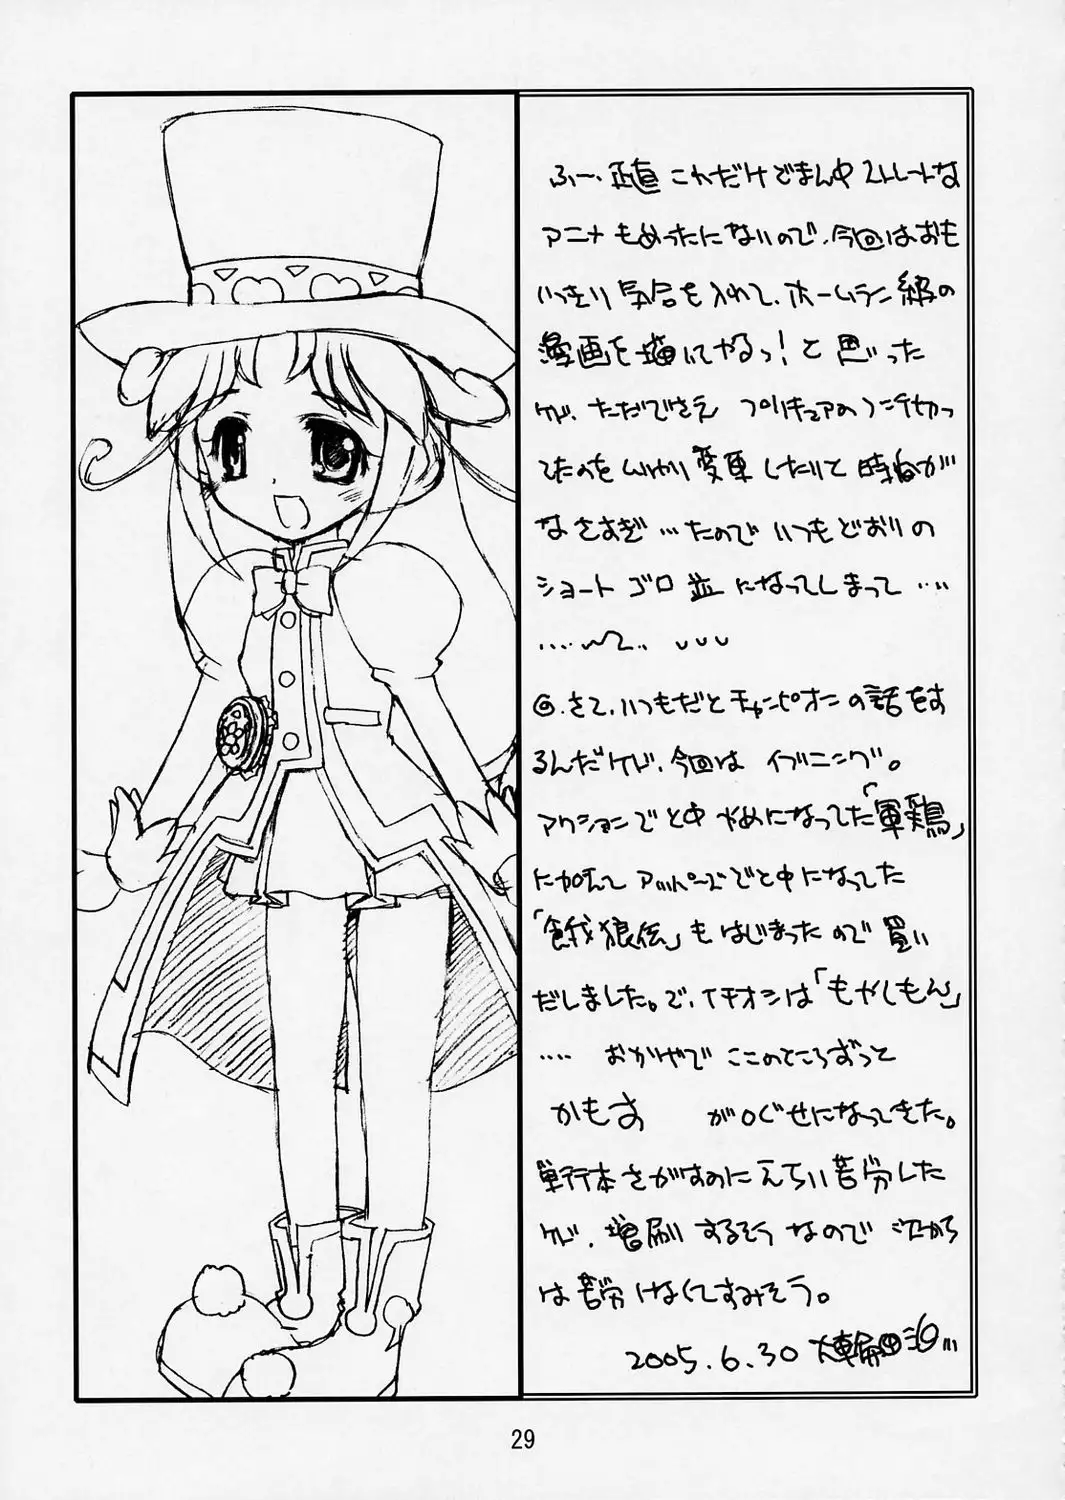 ふー、正直 これだけでまん中ストレートな
アニメもめったにないので、今回はおも
いっきり 気合を入れて、ホームラン級の
漫画を描いてやるっ!と思った
けど、ただでさえ プリキュアのつ 切っ
てたのを ムリヤリ変更したりして 時間が
なさすぎ…たので いつもどおりの
ショートゴロ並になってしまって……
……
◎、さて、いつもだとチャンピオンの話をす
るんだけど、今回は イブニング。
アクションでと中やめになってた「軍鶏」
に加えて アッパーズでと中になってた
「餓狼伝」もはじまったので買い
だしました。で、イチオシは「もやしもん」
…… おかげで ここのところずっと
かもす が口ぐせになってきた。
単行本さがすのにえらい苦労した
けど、増刷するそうなので 次から
は苦労はなくてすみそう。
2005.6.30 大輪田
29